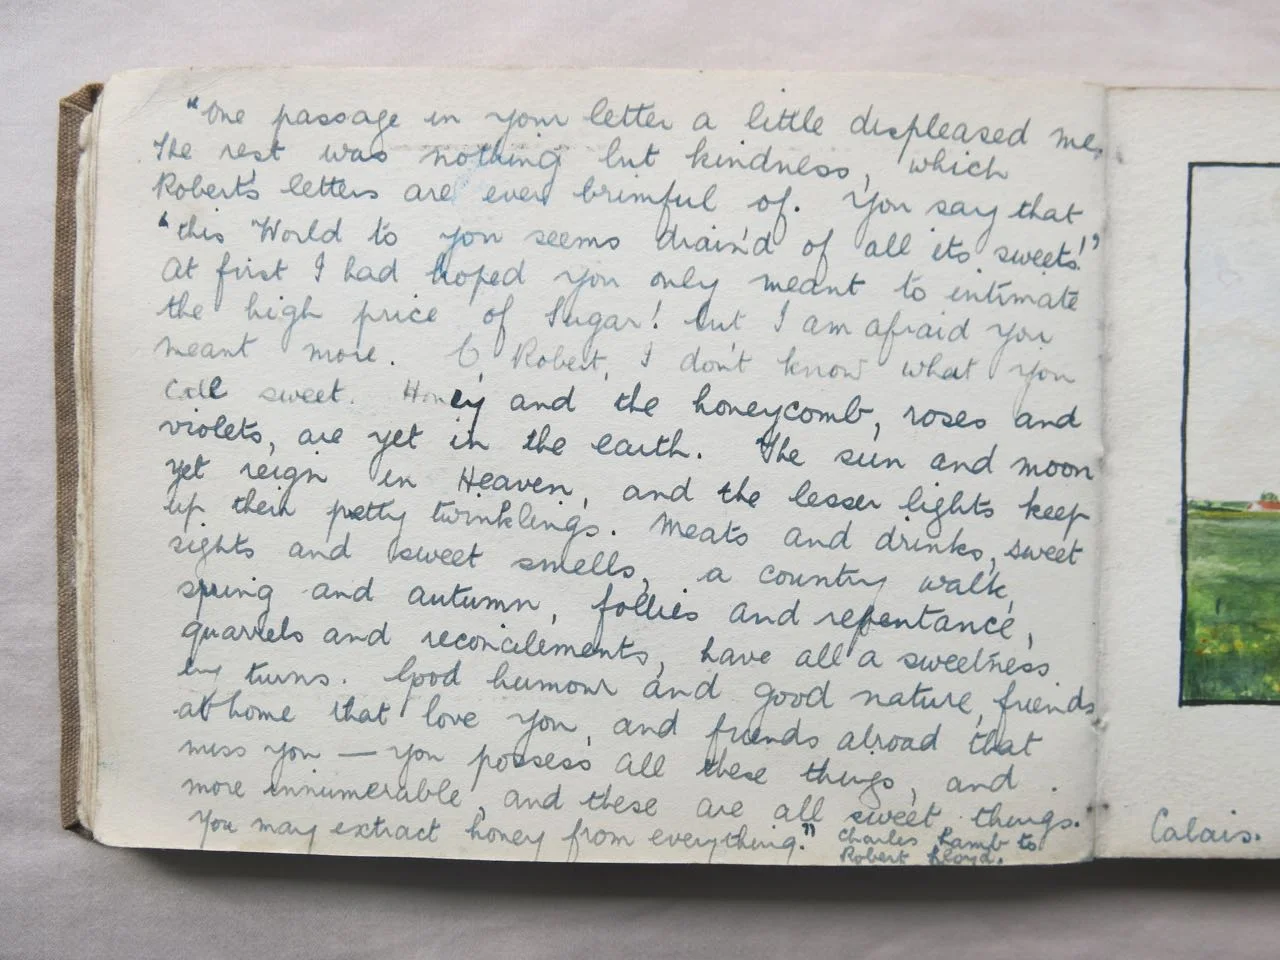 "One passage in your letter a little displeased me.
The rest was nothing but kindness, which
Robert's letters are ever brimful of. You say that
"this World to you seems drain'd of all its sweets!"
At first I had hoped you only meant to intimate
the high price of Sugar! but I am afraid you
meant more. O, Robert, I don't know what you
call sweet. Honey and the honeycomb, roses and
violets, are yet in the earth. The sun and moon
yet reign in Heaven, and the lesser lights keep
up their petty twinklings. Meats and drinks, sweet
sights and sweet smells, a country walk,
spring and autumn, follies and repentance,
quarrels and reconcilements, have all a sweetness
by turns. Good humour and good nature, friends
at home that love you, and friends abroad that
miss you — you possess all these things, and
more innumerable, and these are all sweet things.
You may extract honey from everything."
Charles Lamb to
Robert Lloyd.
Calais.